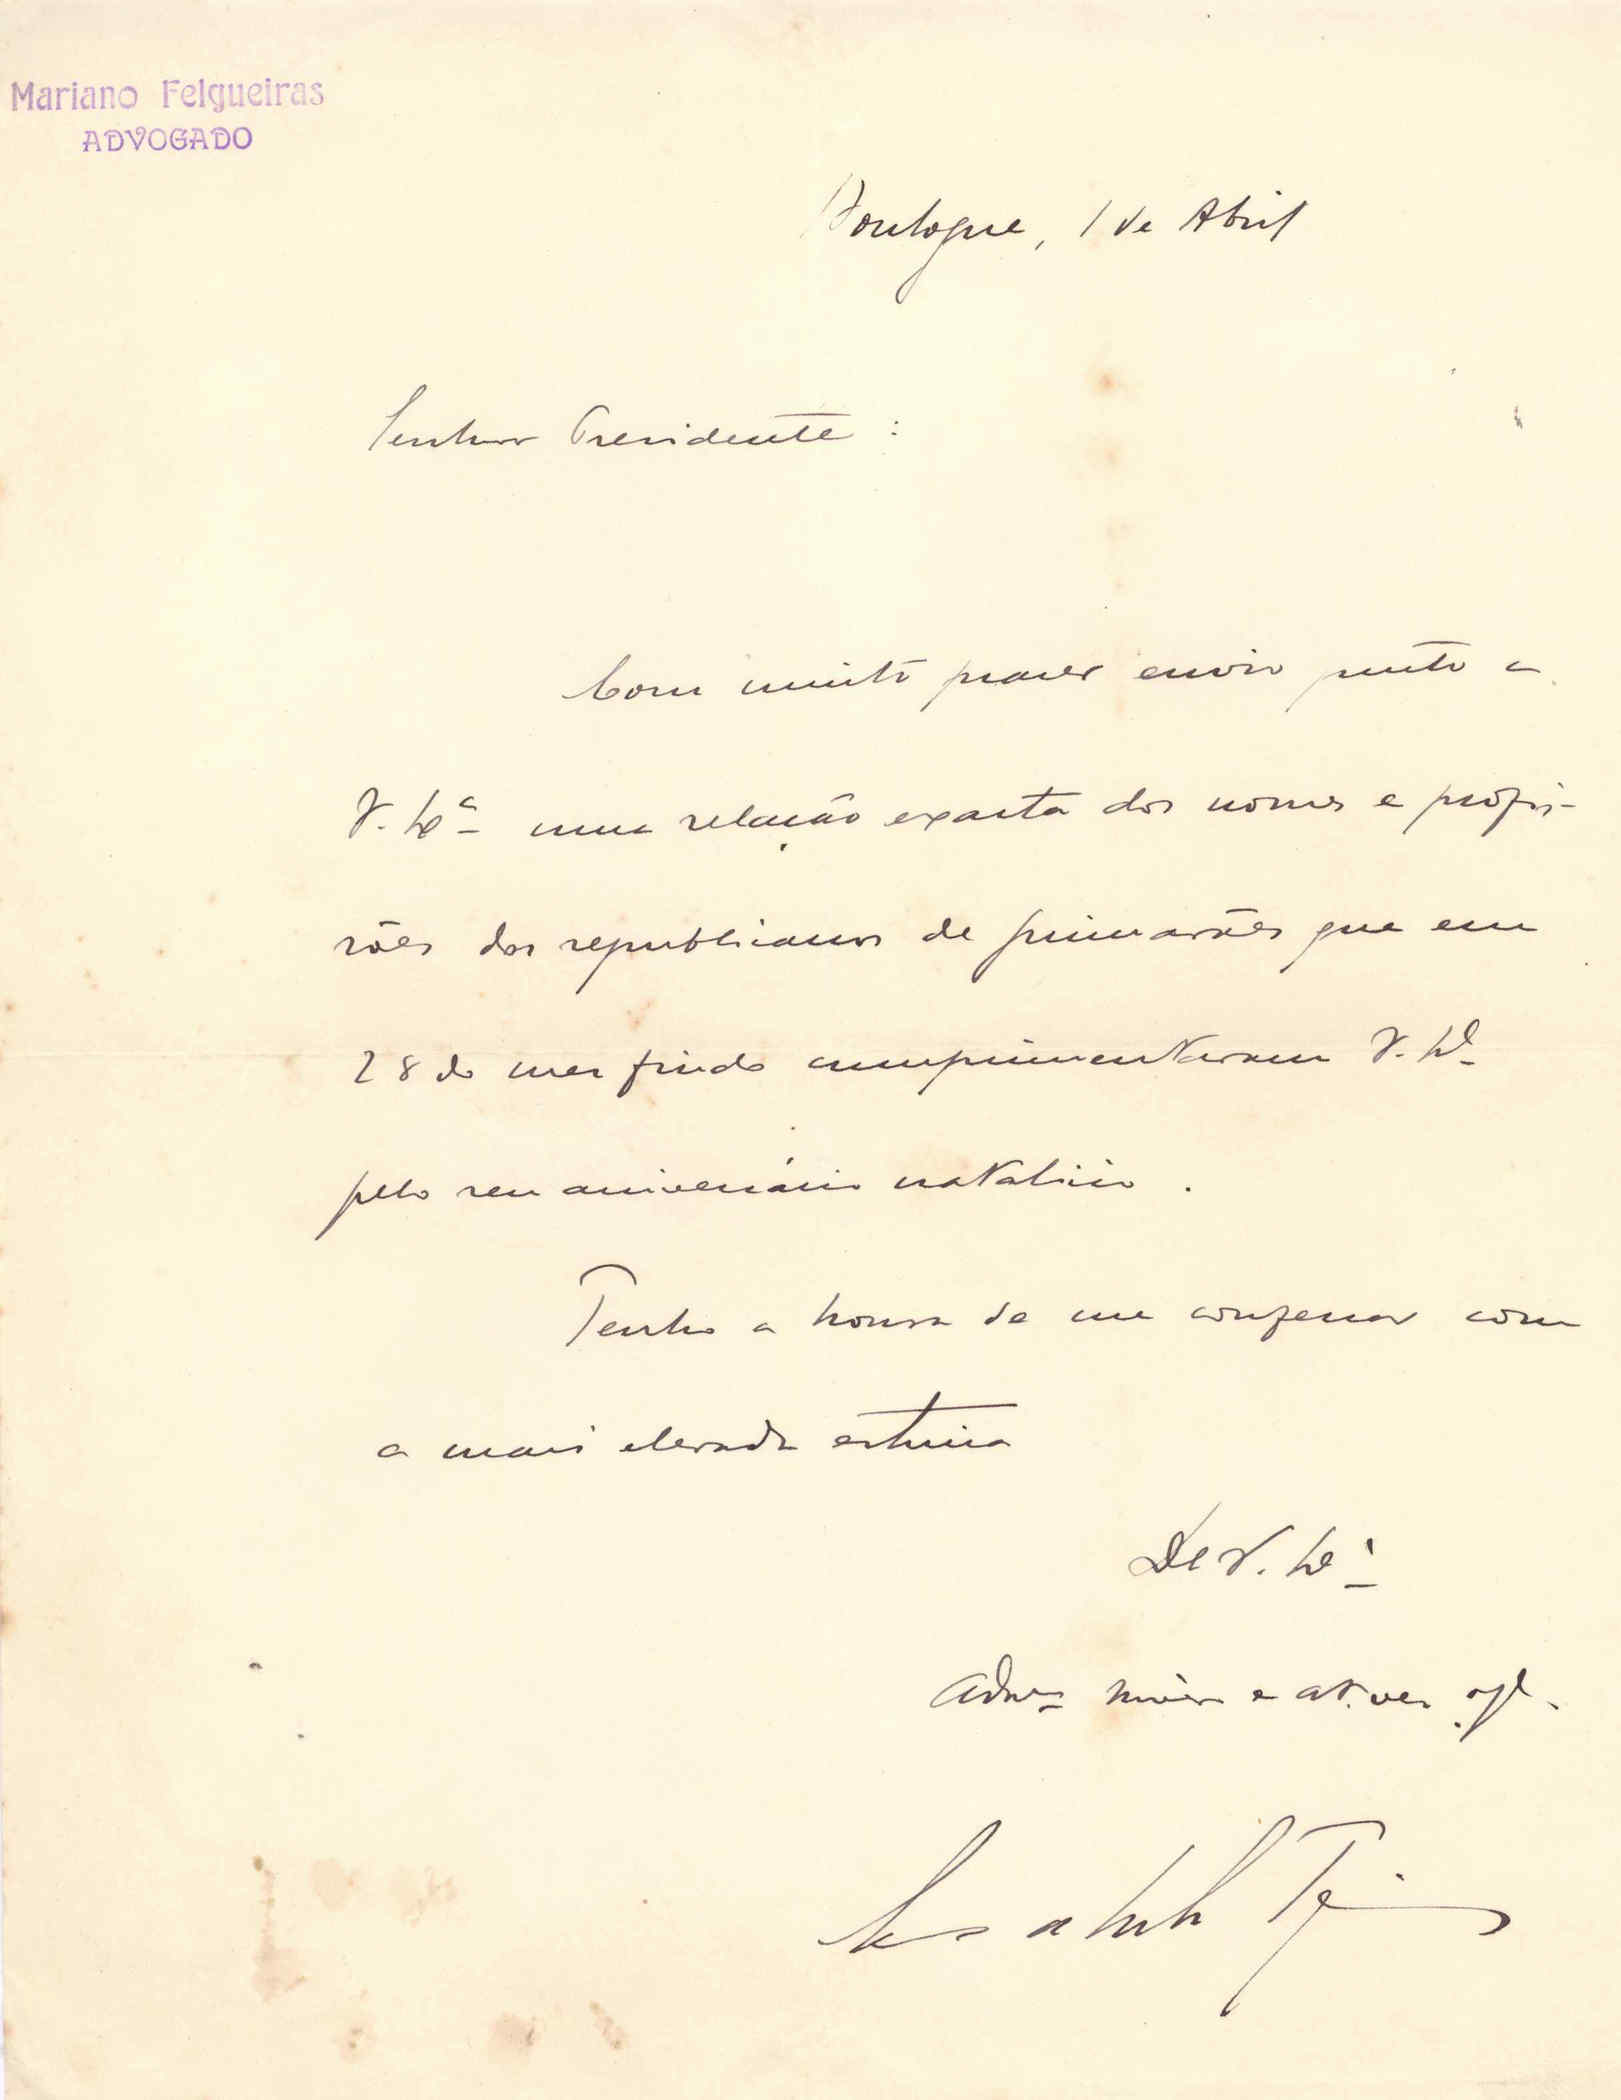 Mariano Felgueiras
ADVOGADO
Boulogne, 1 de Abril
Senhor Presidente :
Com muito prazer envio junto a
V. Exª uma relação exacta dos nomes e profis-
sões dos republicanos de Guimarães que em
28 do mez findo cumprimentaram V. Exª
pelo seu aniversário natalicio.
Tenho a honra de me confessar com
a mais elevada estima
De V. Exª
e